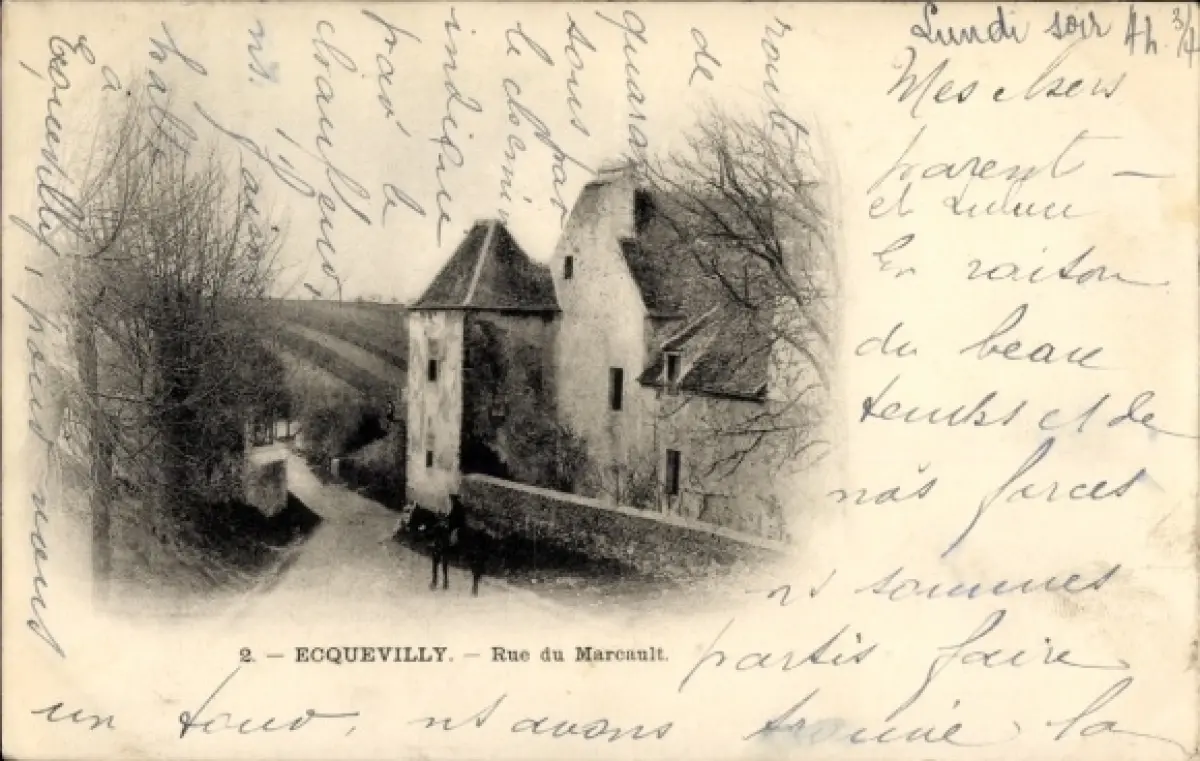 Lundi soir 4h. 3/4
Mes chers
parent —
et Lulu
En raison
du beau
temps et de
nos forces
ns sommes
partis faire
un tour, ns avons trouvé la
route
de
sous par
le chemin
indiqué
par le
chauffeur
ns.
halte
à
Ecquevilly, pour vous
2. — ECQUEVILLY. — Rue du Marcault.